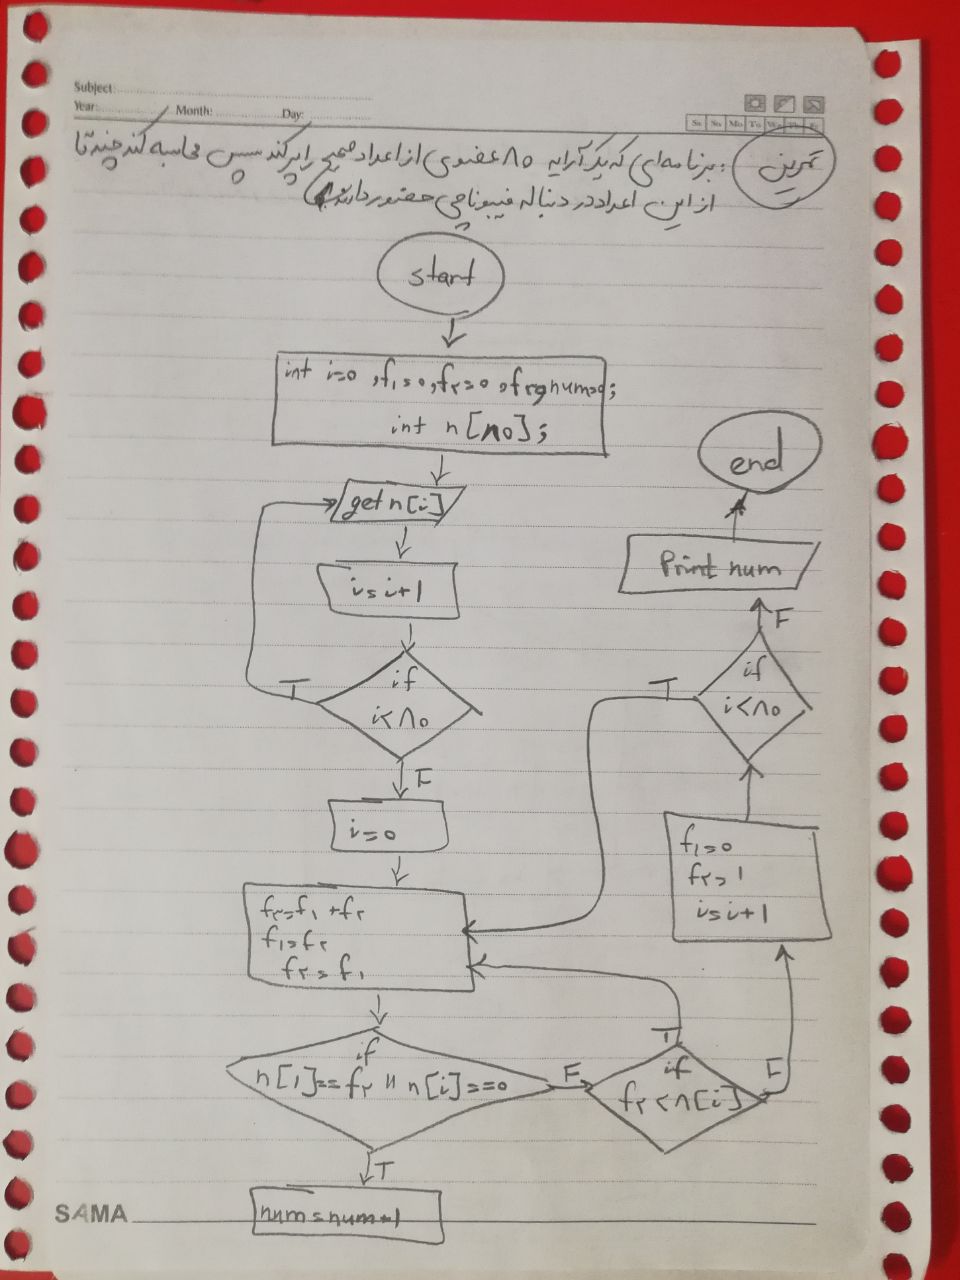 Subject:
Year: Month: Day:
Sa Su Mo Tu We Th Fr
تمرین: برنامه‌ای که یک آرایه ۸۰ عضوی از اعداد صحیح را پر کند سپس محاسبه کند چند تا
از این اعداد در دنباله فیبوناچی حضور دارند
start
int i=0 ,f۱=0,f۲=0 ,f۳ num=0;
int n[۸۰];
get n[i]
i=i+1
if
i<۸۰
T
F
i=0
f۳=f۱+f۲
f۱=f۲
f۲=f۱
if
n[i]==f۲ || n[i]==0
F
T
num=num+1
if
f۲<n[i]
T
F
f۱=0
f۲=1
i=i+1
if
i<۸۰
T
F
Print num
end
SAMA